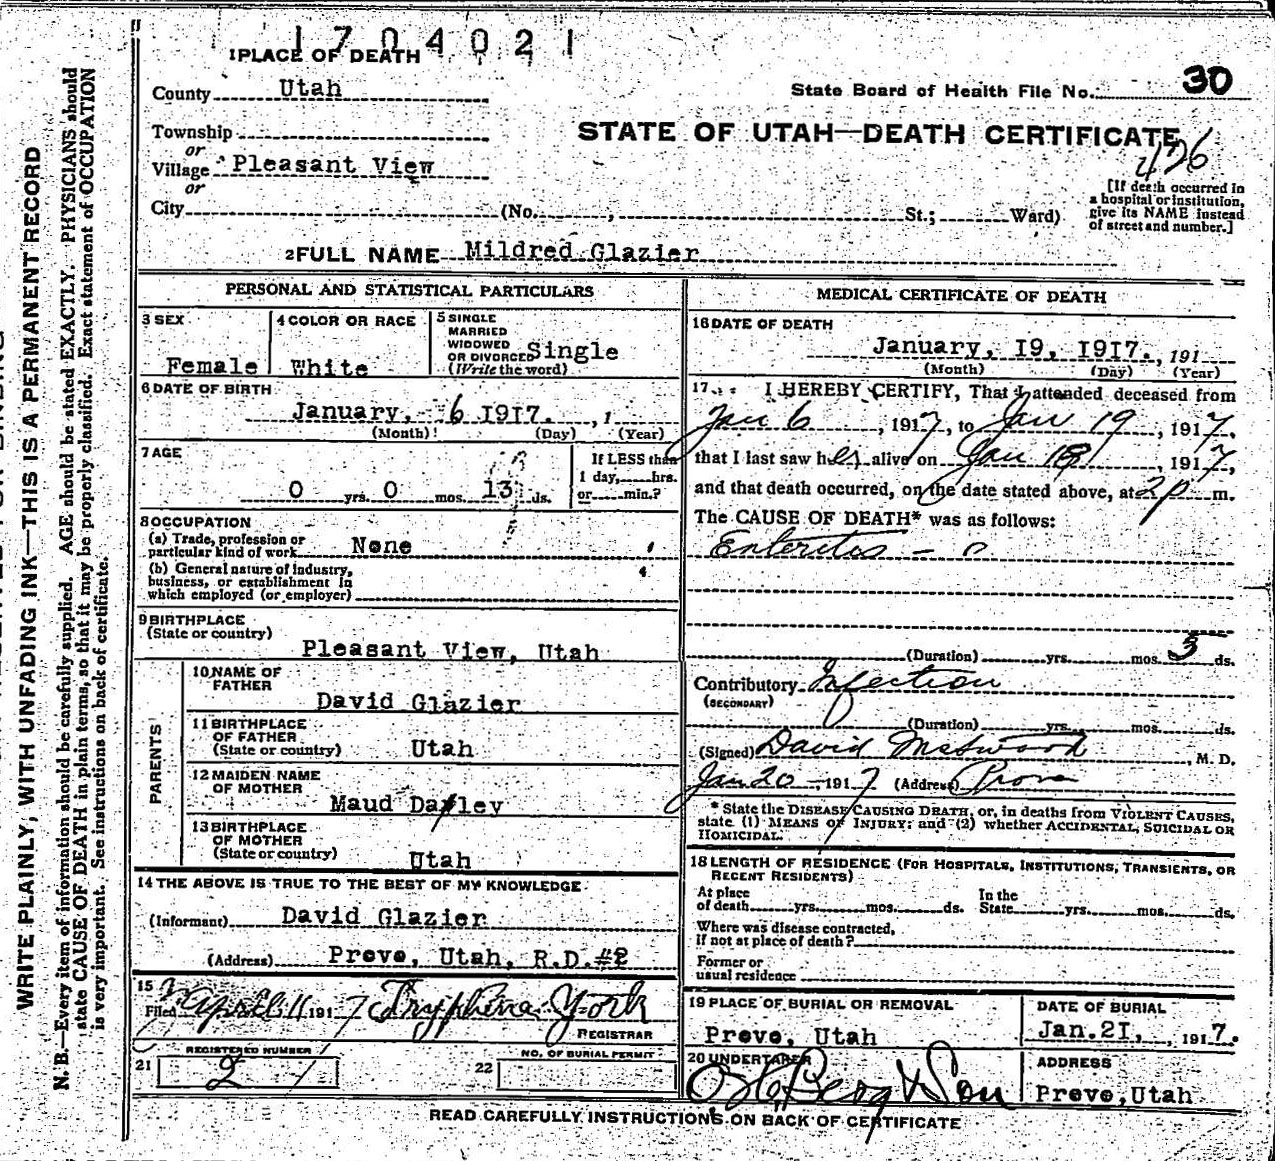 1704021
1 PLACE OF DEATH
County Utah
State Board of Health File No. 30
Township
or
Village Pleasant View
or
City (No. , St.; Ward)
STATE OF UTAH—DEATH CERTIFICATE
426
[If death occurred in
a hospital or institution,
give its NAME instead
of street and number.]
2 FULL NAME Mildred Glazier
PERSONAL AND STATISTICAL PARTICULARS
3 SEX
Female
4 COLOR OR RACE
White
5 SINGLE
MARRIED
WIDOWED
OR DIVORCED Single
(Write the word)
6 DATE OF BIRTH
January, 6 1917. , 1
(Month) (Day) (Year)
7 AGE
0 yrs. 0 mos. 13 ds.
If LESS than
1 day, hrs.
or min.?
8 OCCUPATION
(a) Trade, profession or
particular kind of work None
(b) General nature of industry,
business, or establishment in
which employed (or employer)
9 BIRTHPLACE
(State or country)
Pleasant View, Utah
PARENTS
10 NAME OF
FATHER
David Glazier
11 BIRTHPLACE
OF FATHER
(State or country) Utah
12 MAIDEN NAME
OF MOTHER
Maud
13 BIRTHPLACE
OF MOTHER
(State or country) Utah
14 THE ABOVE IS TRUE TO THE BEST OF MY KNOWLEDGE
(Informant) David Glazier
(Address) Provo, Utah, R.D.#2
15
Filed April 11 1917 Tryphena York
REGISTRAR
21 REGISTERED NUMBER
2
22 NO. OF BURIAL PERMIT
MEDICAL CERTIFICATE OF DEATH
16 DATE OF DEATH
January, 19, 1917. , 191
(Month) (Day) (Year)
17 I HEREBY CERTIFY, That I attended deceased from
Jan 6 , 1917, to Jan 19 , 1917,
that I last saw her alive on Jan 18 , 1917,
and that death occurred, on the date stated above, at 2 p m.
The CAUSE OF DEATH* was as follows:
Enteritus
(Duration) yrs. mos. 3 ds.
Contributory Infection
(SECONDARY)
(Duration) yrs. mos. ds.
(Signed) David , M. D.
Jan 20 , 1917 (Address) Provo
* State the DISEASE CAUSING DEATH, or, in deaths from VIOLENT CAUSES,
state (1) MEANS OF INJURY; and (2) whether ACCIDENTAL, SUICIDAL OR
HOMICIDAL.
18 LENGTH OF RESIDENCE (FOR HOSPITALS, INSTITUTIONS, TRANSIENTS, OR
RECENT RESIDENTS)
At place
of death yrs. mos. ds.
In the
State yrs. mos. ds.
Where was disease contracted,
if not at place of death?
Former or
usual residence
19 PLACE OF BURIAL OR REMOVAL
Provo, Utah
DATE OF BURIAL
Jan.21, , 1917.
20 UNDERTAKER
Berg & Son
ADDRESS
Provo,Utah
READ CAREFULLY INSTRUCTIONS ON BACK OF CERTIFICATE
WRITE PLAINLY, WITH UNFADING INK—THIS IS A PERMANENT RECORD
N. B.—Every item of information should be carefully supplied. AGE should be stated EXACTLY. PHYSICIANS should
state CAUSE OF DEATH in plain terms, so that it may be properly classified. Exact statement of OCCUPATION
is very important. See instructions on back of certificate.